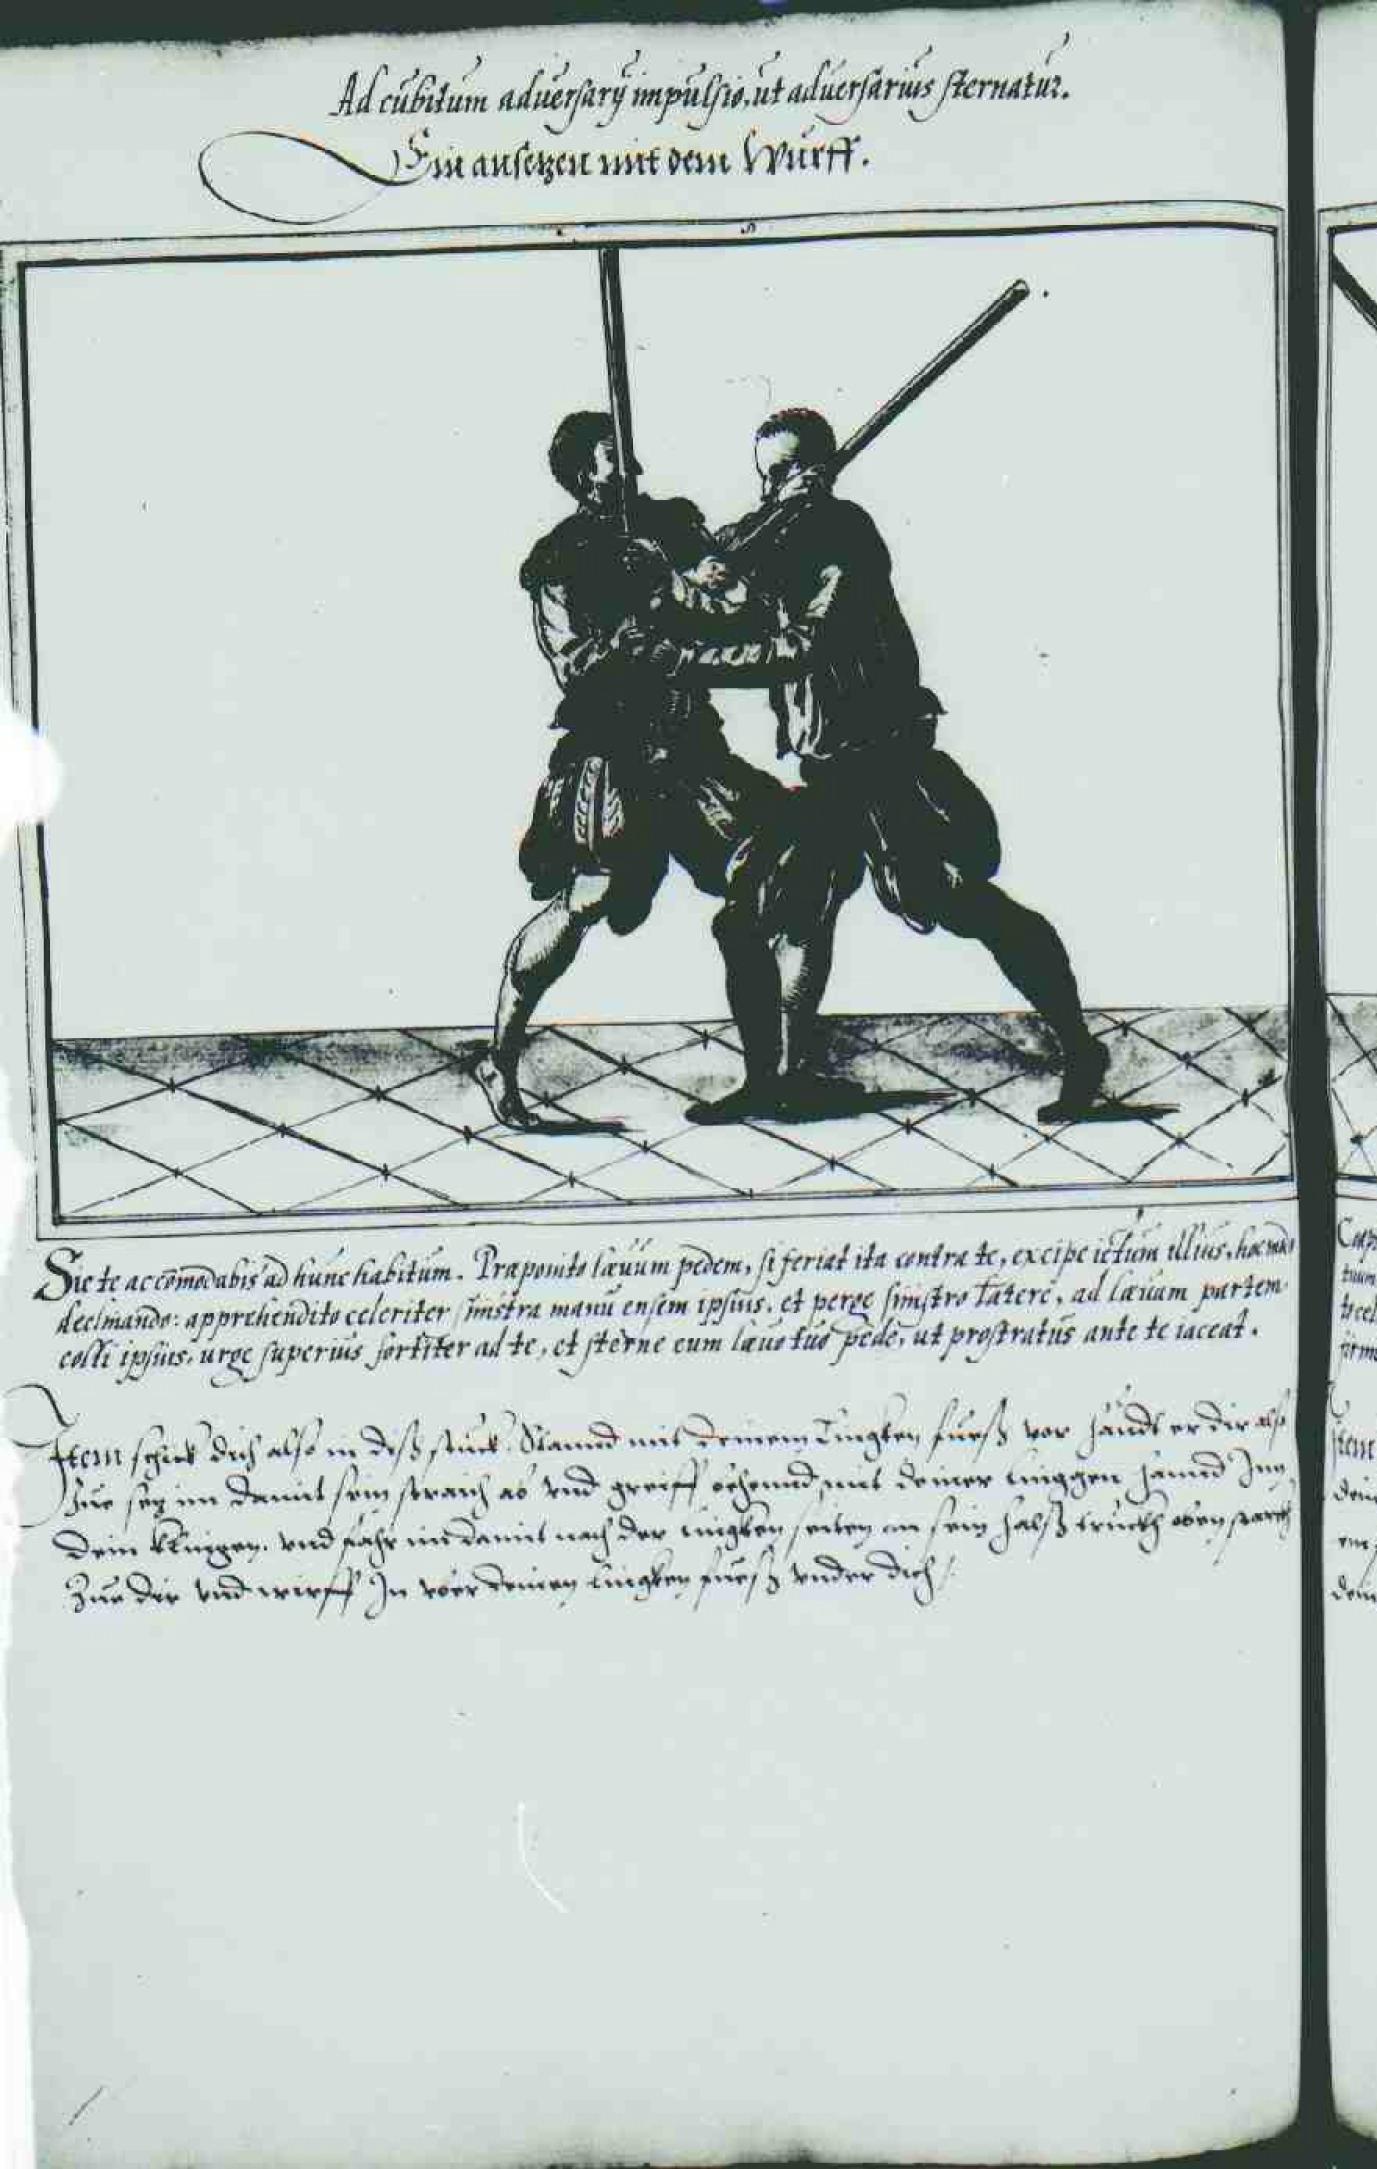 Ad cubitum adversarÿ impulsio, ut adversarius sternatur.
Ein ansetzen mit dem Wurff.
Sic te accōmodabis ad hunc habitum. Præponito lævum pedem, si feriat ita contra te, excipe ictum illius, hoc
declinando: apprehendito celeriter sinistra manu ensem ipsius, et perge sinistro latere, ad lævam partem
colli ipsius, urge superius fortiter ad te, et sterne eum lævo tuo pede, ut prostratus ante te iaceat.
Item schick dich also in diß stuck. Stannd mit deinem Lingken fuesß vor haudt er dir also
Zue setz im damit sein straich ab vnd greiff behennd mit deiner linggen hannd Inn
dein Klingen. vnd fahr im damit nach der lingken seiten an sein halß truckh oben starckh
Zue dir vnd wirff In vber deinen lingken fuesß vnder dich
Item